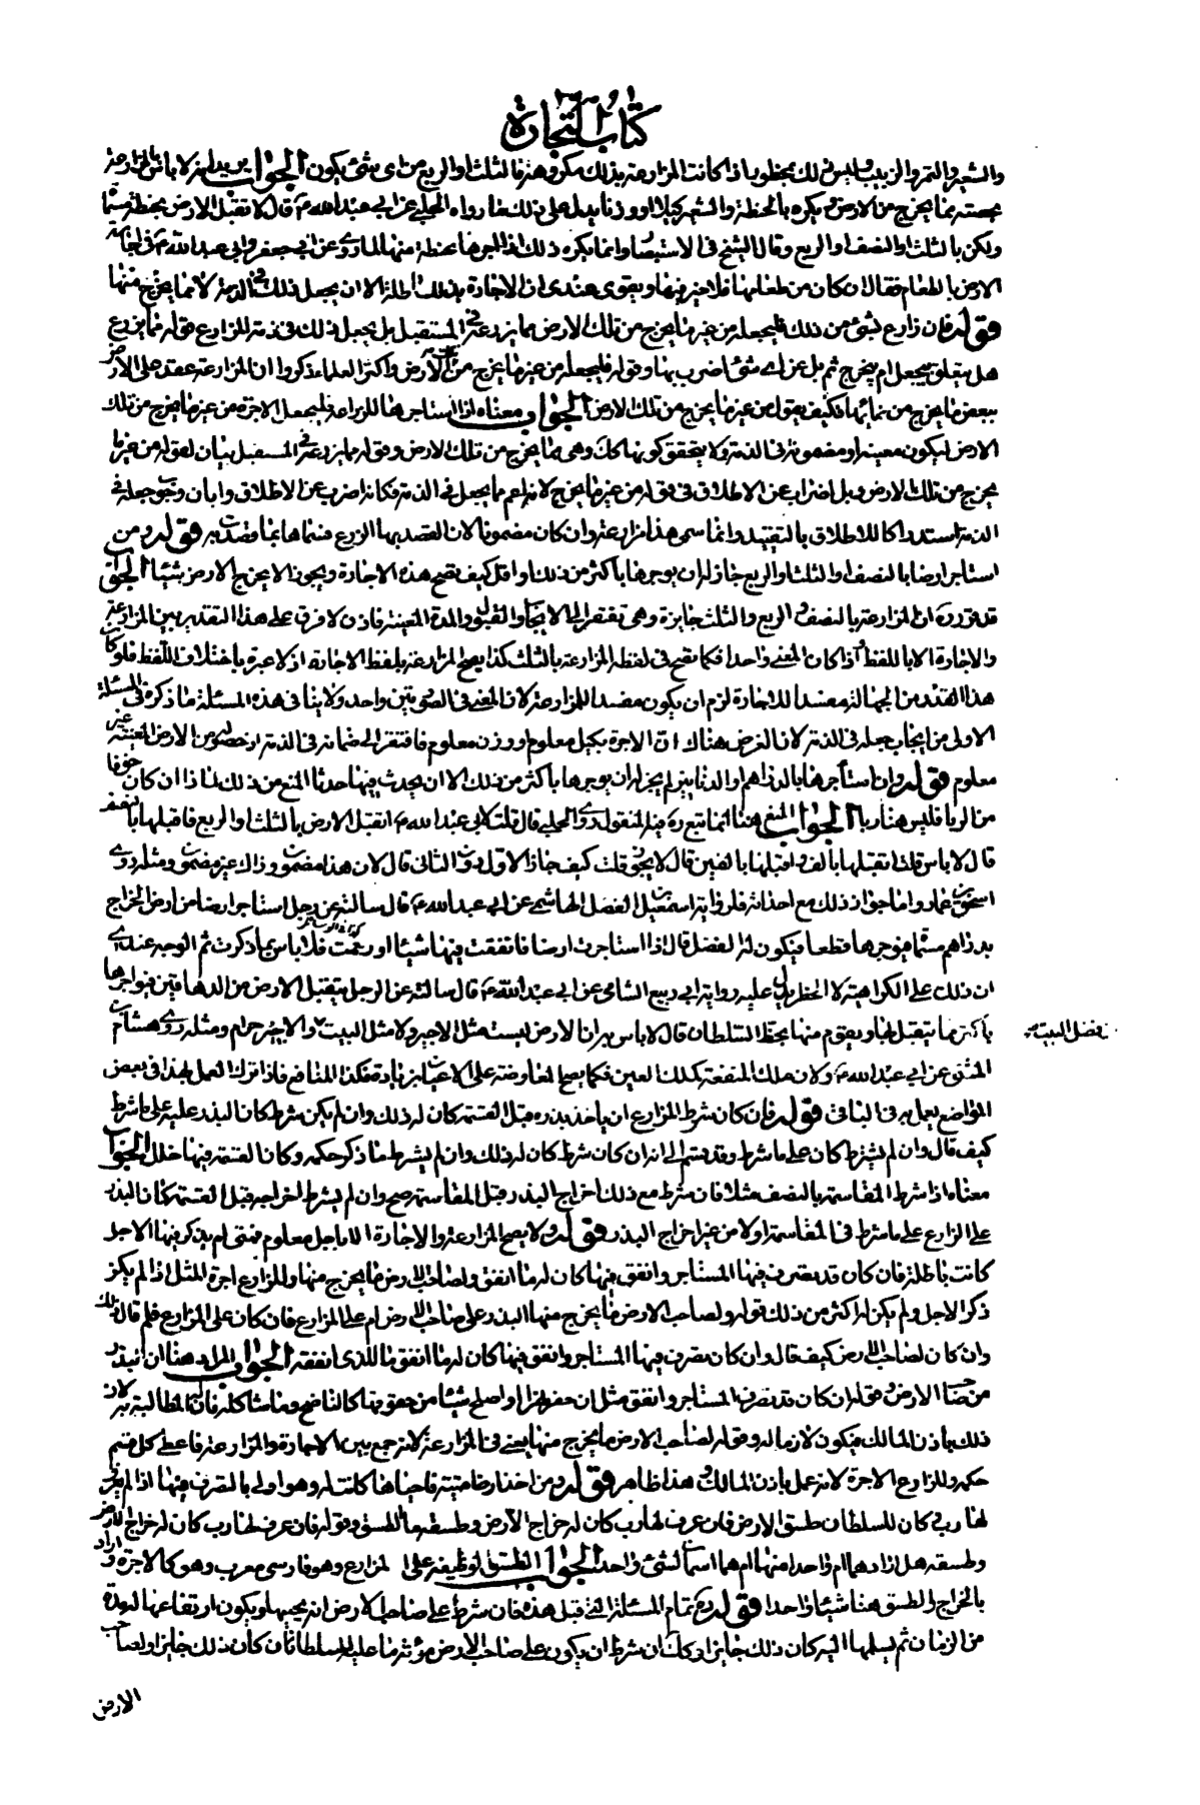 كتاب التجارة
والشعير والتمر والزبيب وليس ذلك بمحظور فاذا كانت المزارعة بذلك مكروهة فالثلث او الربع من اى شئ يكون الجواب يريد انه لا باس بالمزارعة
بحصته بما يخرج من الارض ويكره بالحنطة والشعير كيلا او وزنا يدل على ذلك ما رواه الحلبي عن ابي عبد الله ع قال لا تقبل الارض بحنطة مسماة
ولكن بالثلث او النصف او الربع وقال الشيخ في الاستبصار وانما يكره ذلك اذا اجرها بحنطة منها لما روي عن ابي جعفر وابي عبد الله ع في اجارة
الارض بالطعام فقال ان كان من طعامها فلا خير فيها ويقوى عندى ان الاجارة بذلك باطلة الا ان يجعل ذلك في الذمة لا مما يخرج منها
قوله فان زارع بشئ من ذلك فليجعله من غير ما يخرج من تلك الارض مما يزرعه في المستقبل بل يجعل ذلك في ذمة المزارع قوله مما يزرع
هل يتعلق بيجعل ام بيخرج ثم بل عن اى شئ اضرب بها وقوله فليجعله من غير ما يخرج من الارض واكثر العلماء ذكروا ان المزارعة عقد على الارض
ببعض ما يخرج من نمائها فكيف يقول من غير ما يخرج من تلك الارض الجواب معناه اذا استاجرها للزراعة فليجعل الاجرة من غير ما يخرج من تلك
الارض ليكون معينه او مضمونة في الذمة ولا يتحقق كونها كك وهى مما يخرج من تلك الارض وقوله مما يزرعه في المستقبل بيان لقوله من غير ما
يخرج من تلك الارض وبل اضراب عن الاطلاق في قوله من غير ما يخرج لانه اعم مما يجعل في الذمة فكانه اضرب عن الاطلاق وابان وجوب جعله في
الذمة استدراكا للاطلاق بالتقييد وانما سمى هذا مزارعة وان كان مضمونا لان القصد بها الزرع فسماها بما قصدت به قوله ومن
استاجر ارضا بالنصف او الثلث او الربع جاز له ان يوجرها باكثر من ذلك واقل كيف تصح هذه الاجارة ويجوز الا يخرج الارض شيئا الجواب
قد قررة ان المزارعة بالنصف والربع والثلث جايزة وهى تفتقر الى الايجاب والقبول والمدة المعينة فاذن لا فرق على هذا التقدير بين المزارعة
والاجارة الا باللفظ واذا كان المعنى واحدا فكما يصح في لفظ المزارعة بالثلث كذا يصح المزارعة بلفظ الاجارة اذ لا عبرة باختلاف اللفظ فلو كان
هذا القدر من الجهالة مفسدا للاجارة لزم ان يكون مفسدا للمزارعة لان المعنى في الصورتين واحد ولا ينافى هذه المسئلة ما ذكره في المسئلة
الاولى من ايجاب جعله في الذمة لان الفرض هناك ان الاجرة بكيل معلوم او وزن معلوم فافتقر الى ضمانه في الذمة اذ حصوله من الارض المعينة غير
معلوم قوله وان استاجرها بالدراهم والدنانير لم يجز له ان يوجرها باكثر من ذلك الا ان يحدث فيها حدثا المنع من ذلك لماذا ان كان خوفا
من الربا فليس هنا ربا الجواب المنع هنا انما تبع ره فيه المنقول روى الحلبي قال قلت لابي عبد الله ع اتقبل الارض بالثلث او الربع فاقبلها بالنصف
قال لا باس قلت اتقبلها بالف واقبلها بالفين قال لا يجوز قلت كيف جاز الاول ولم يجز الثانى قال لان هذا مضمون وذاك غير مضمون ومثله روى
اسحق بن عمار واما جواز ذلك مع احداثه فلرواية اسمعيل بن الفضل الهاشمى عن ابي عبد الله ع قال سالته عن رجل استاجر ارضا من ارض الخراج
بدراهم مسماة فيوجرها قطعا فيكون له الفضل قال اذا استاجرت ارضا فانفقت فيها شيئا او رممت فلا باس بما ذكرت ثم الوجه عندى
ان ذلك على الكراهية لا الحظر يدل عليه رواية ابي ربيع الشامى عن ابي عبد الله ع قال سالته عن الرجل يتقبل الارض من الدهاقين فيواجرها
باكثر مما يتقبلها ويقوم منها بحظ السلطان قال لا باس به ان الارض ليست مثل الاجير ولا مثل البيت والاجير حرام ومثله روى هشام
فضل البيت
المثنى عن ابي عبد الله ع ولان ملك المنفعة كملك العين فكما يصح المعاوضة على الاعيان بزيادة فكذا المنافع فاذا ترك العمل بهذا في بعض
المواضع يعمل به في الباقى قوله فان كان شرط المزارع ان ياخذ بذره قبل القسمة كان له ذلك وان لم يكن شرط كان البذر عليه على ما شرط
كيف قال وان لم يشرط كان على ما شرط وقد قسم الى انه ان كان شرط كان له ذلك وان لم يشرط ما ذكر حكمه وكان القسمة فيها خلل الجواب
معناه اذا شرط المقاسمة بالنصف مثلا فان شرط مع ذلك اخراج البذر قبل المقاسمة صح وان لم يشرط اخراجه قبل القسمة كان البذر
على الزارع على ما شرط في المقاسمة اولا من غير اخراج البذر قوله ولا يصح المزارعة والاجارة الا باجل معلوم فمتى لم يذكر فيها الاجل
كانت باطلة فان كان قد تصرف فيها المستاجر وانفق فيها كان له ما انفق ولصاحب الارض ما يخرج منها وللزارع اجرة المثل اذا لم يكن
ذكر الاجل ولم يكن له اكثر من ذلك قوله ولصاحب الارض ما يخرج منها البذر على صاحب الارض ام على المزارع فان كان على المزارع فلم قال ذلك
وان كان لصاحب الارض كيف قال وان كان تصرف فيها المستاجر وانفق فيها كان له ما انفق ما الذى انفقه الجواب المراد هنا ان البذر
من صاحب الارض وقوله ان كان قد تصرف فيها المستاجر وانفق مثل ان حفر نهرا او اصلح شيئا من حقوقها كالناضح وما شاكله فان له المطالبة به لان
ذلك باذن المالك فيكون لازما له وقوله لصاحب الارض ما يخرج منها يعنى في المزارعة لانه جمع بين الاجارة والمزارعة فاعطى كل قسم
حكمه وللزارع الاجرة لانه عمل باذن المالك وهذا ظاهر قوله ومن اخذ ارضا ميتة فاحياها كانت له وهو اولى بالتصرف فيها اذا لم يعرف
لها رب كان للسلطان طسق الارض فان عرف لها رب كان له خراج الارض وطسقها ما الطسق وقوله فان عرف لها رب كان له خراج الارض
وطسقه هل اراد هما ام واحدا منهما ام هما اسما لشئ واحد الجواب الطسق الوظيفة على المزارع وهو فارسى معرب وهو كالاجرة واراد
بالخراج والطسق هنا شيئا واحدا قوله ره تمام المسئلة التى قبل هذه فان شرط على صاحب الارض انه يحييها ويكون ارتفاعها لمدة
من الزمان ثم يسلمها اليه كان ذلك جايزا وكك ان شرط ان يكون على صاحب الارض مؤنة ما عليه للسلطان كان ذلك جايزا ولصاحب
الارض